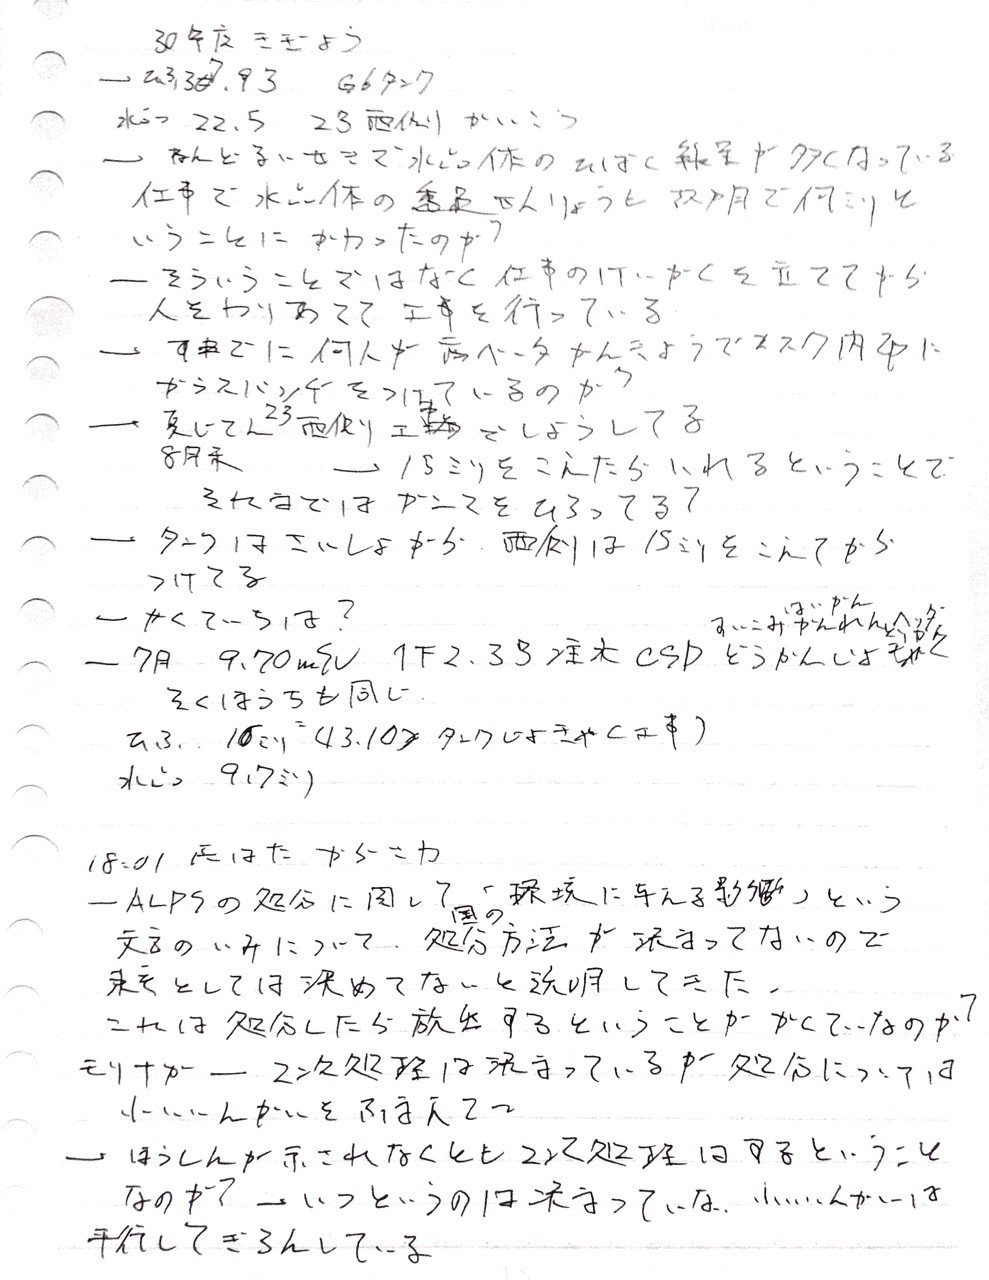 30年度 きぎょう
→ ひふ 37.93 G6タンク
水しょう 22.5 23西側 かいこう
→ なんどるい せきで 水しょう体の ひばく線量が 多くなっている
仕事で 水しょう体の せんりょうも 1ヶ月で何ミリと
いうことに かわったのか?
— そういうことではなく 仕事のけいかくを立ててから
人をわりあてて 工事を行っている
→ すでに 何人が 高ベータかんきょうでマスク内部に
ガラスバッチをつけているのか?
→ 夏じてん 23西側工事でしようしてる
8月末 → 15ミリをこえたら いれるということで
それまでは ガンマをひろってる?
→ タンクはさいしょから 西側は15ミリをこえてから
つけてる
— かくていちは?
— 7月 9.70mSv 1F2.3号 注水 CSP どうかんじょきゃく
すいこみ かんれん ヘッダ
はいかん
そくほうちも同じ
ひふ 16ミリ (43.10 タンクじょきゃく工事)
水しょう 9.7ミリ
18:01 おはた からこわ
— ALPSの処分に関して「環境に与える影響」という
文言のいみについて、国の処分方法が 決まってないので
東電としては決めてないと説明してきた。
これは 処分したら放出するということが かくていなのか?
モリナガ — 2次処理は決まっているが 処分については
小いいんかいを ふまえて
→ ほうしんが示されなくとも2次処理はするということ
なのか? → いつというのは決まっていな、小いいんかいは
平行してぎろんしている